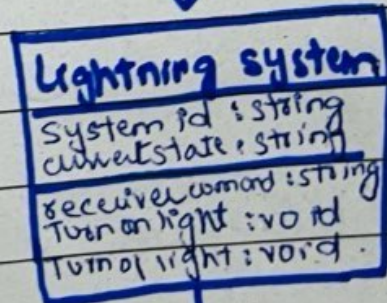 Lightning system
System id : string
currentstate : string
receivecomand : string
Turn on light : void
Turn of light : void.